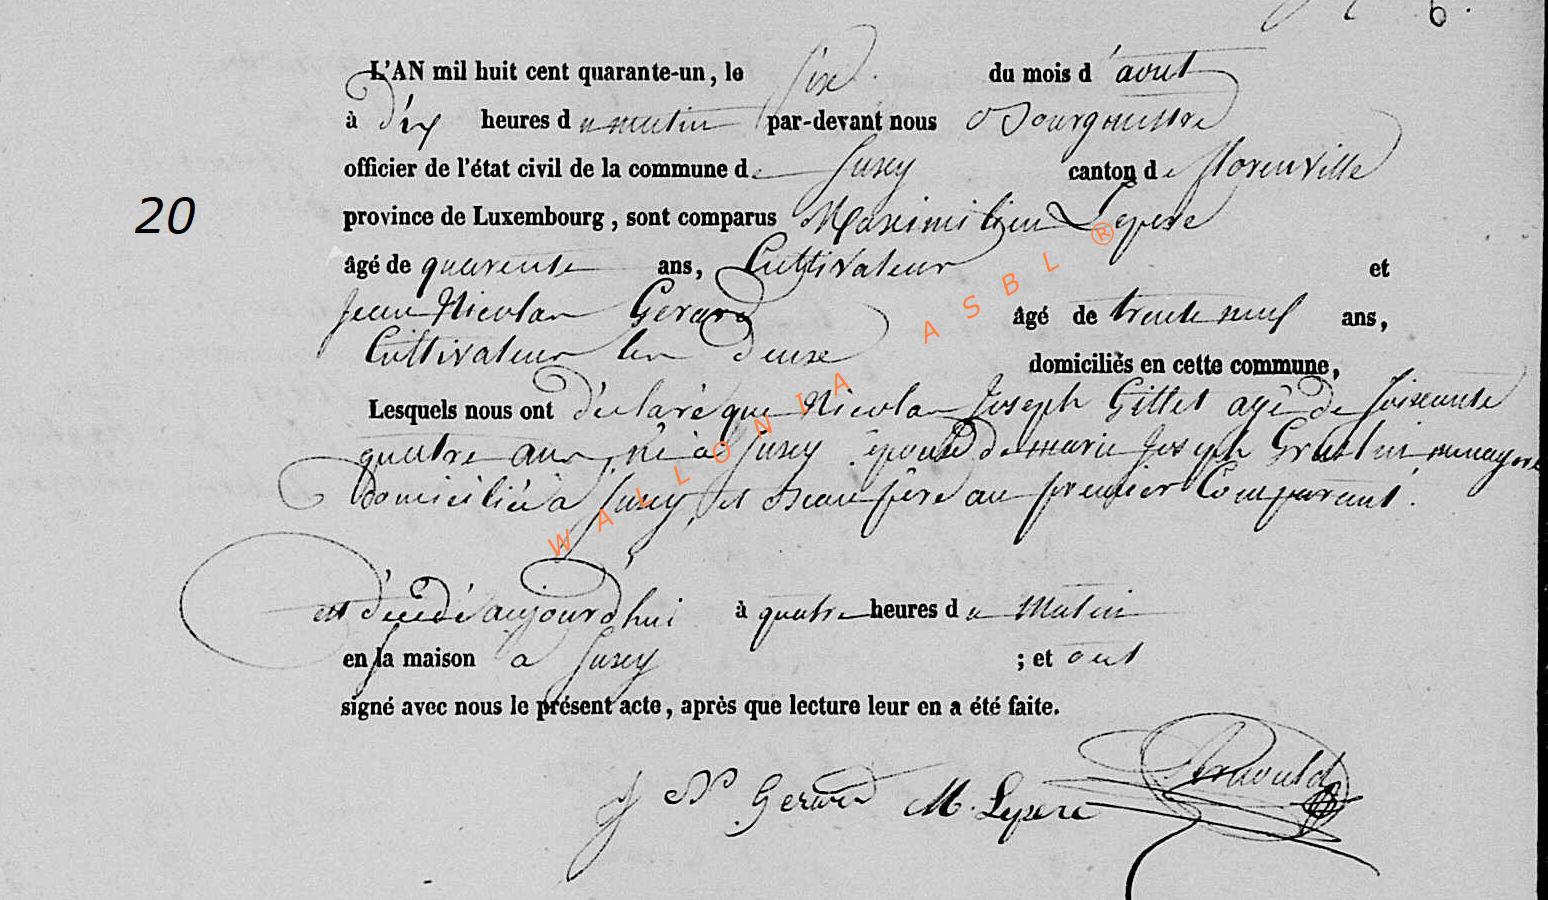 6.
L'AN mil huit cent quarante-un, le six du mois d'aout
à dix heures du matin par-devant nous Bourgmestre
officier de l'état civil de la commune de Jusey canton de florenville
20
province de Luxembourg, sont comparus Maximilien Lepere
âgé de quarente ans, Cultivateur et
Jean Nicolas Gerard âgé de trente neuf ans,
Cultivateur les deux domiciliés en cette commune,
Lesquels nous ont déclaré que Nicolas Joseph Gillet agé de soixante
quatre ans, né à Jusey époux de marie Joseph
domicilié à Jusey, et beau père au premier Comparant.
est décédé aujourd'hui à quatre heures du Matin
en sa maison à Jusey ; et ont
signé avec nous le présent acte, après que lecture leur en a été faite.
J N Gerard M. Lepere
WALLONIA ASBL ®